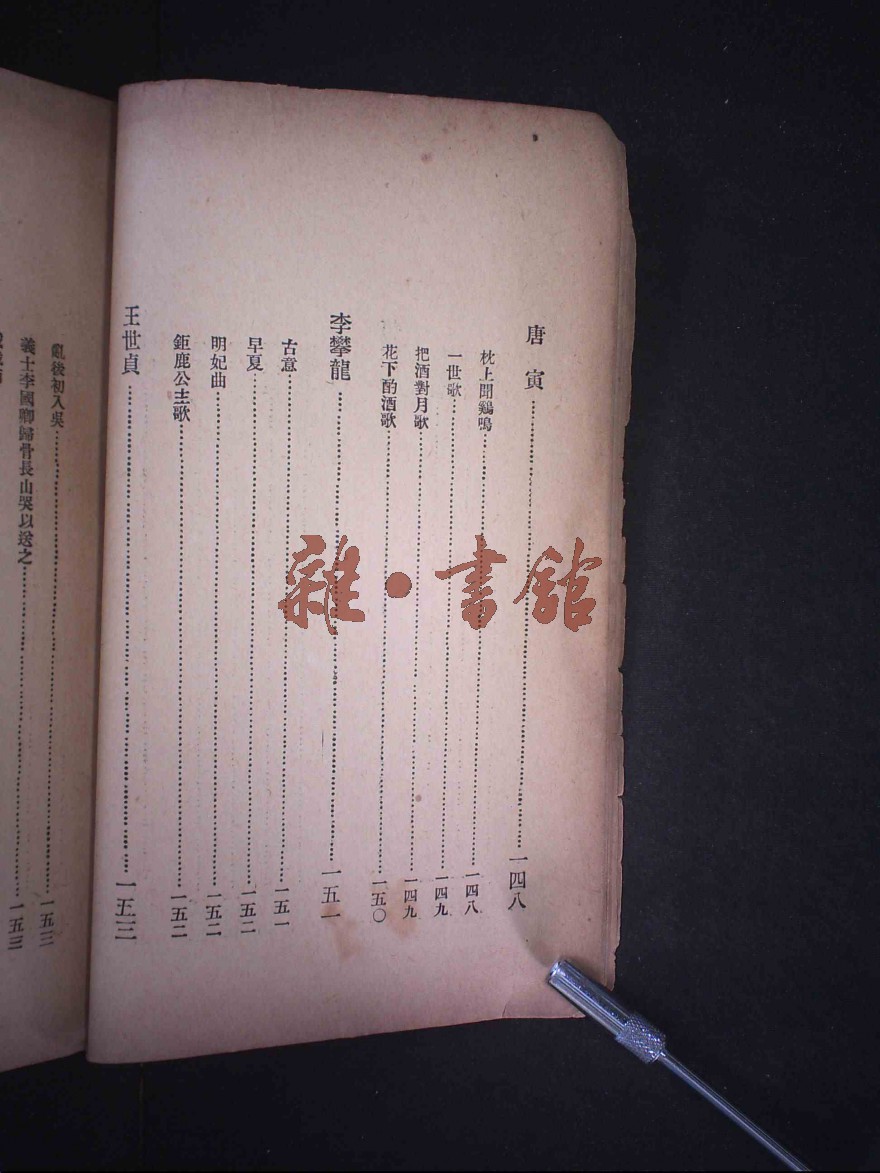 唐寅⋯⋯一四八
枕上聞鷄鳴⋯⋯一四八
一世歌⋯⋯一四九
把酒對月歌⋯⋯一四九
花下酌酒歌⋯⋯一五〇
李攀龍⋯⋯一五一
古意⋯⋯一五一
早夏⋯⋯一五二
明妃曲⋯⋯一五二
鉅鹿公主歌⋯⋯一五二
王世貞⋯⋯一五三
亂後初入吳⋯⋯一五三
義士李國卿歸骨長山哭以送之⋯⋯一五三
雜·書館